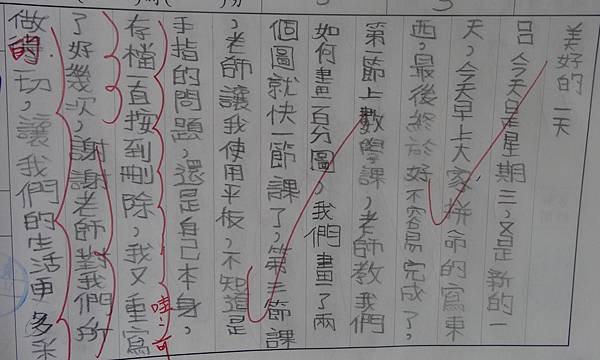 美好的一天
今天是星期三，又是新的一
天，今天早上大家拼命的寫東
西，最後終於好不容易完成了，
第一節上數學課，老師教我們
如何畫百分圖，我們畫了兩
個圖就快一節課了，第三節課
，老師讓我使用平板，不知道是
手指的問題，還是自己本身，
存檔一直按到刪除，我又重寫
哇!可
了好幾次，謝謝老師對我們所
做的一切，讓我們的生活更多采